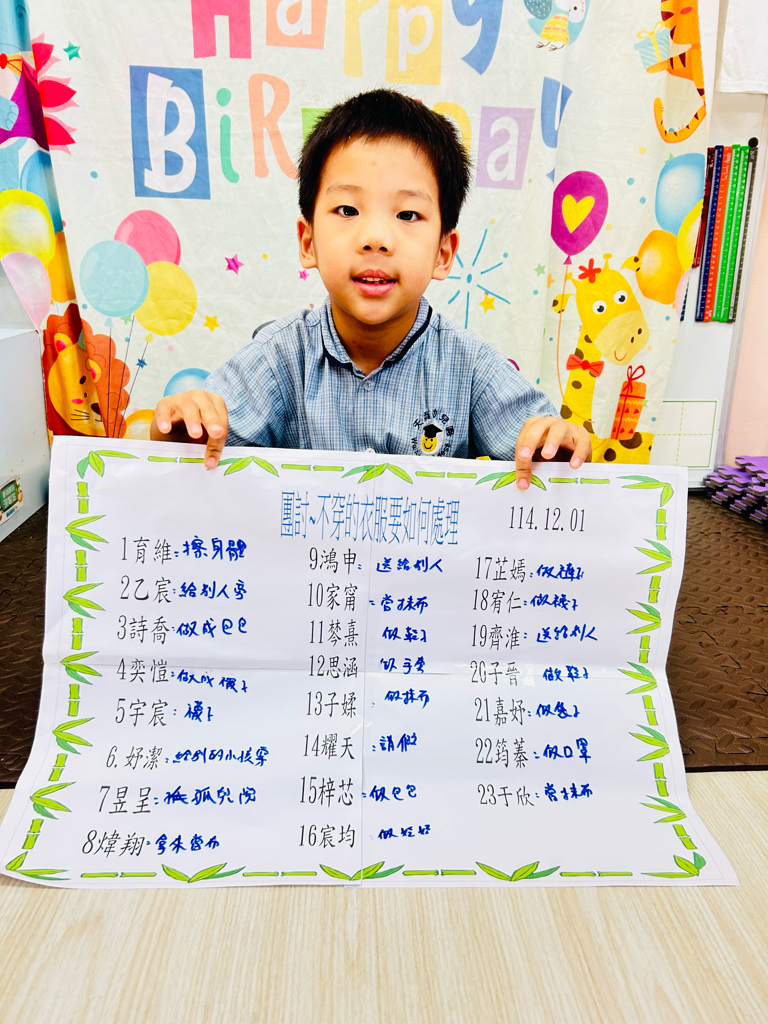 Happy
BiRthday
團討~不穿的衣服要如何處理
114.12.01
1育維:擦身體
2乙宸:給別人穿
3詩喬:做成包包
4奕愷:做成襪子
5宇宸:襪子
6.妤潔:給別的小孩穿
7昱呈:孤兒院
8煒翔:拿來當布
9鴻申:送給別人
10家甯:當抹布
11棽熹 做鞋子
12思涵 做手套
13子媃:做抹布
14耀天:請假
15梓芯:做包包
16宸均:做娃娃
17芷嫣:做褲子
18宥仁:做襪子
19齊淮:送給別人
20子晉 做鞋子
21嘉妤:做袋子
22筠蓁:做口罩
23于欣:當抹布